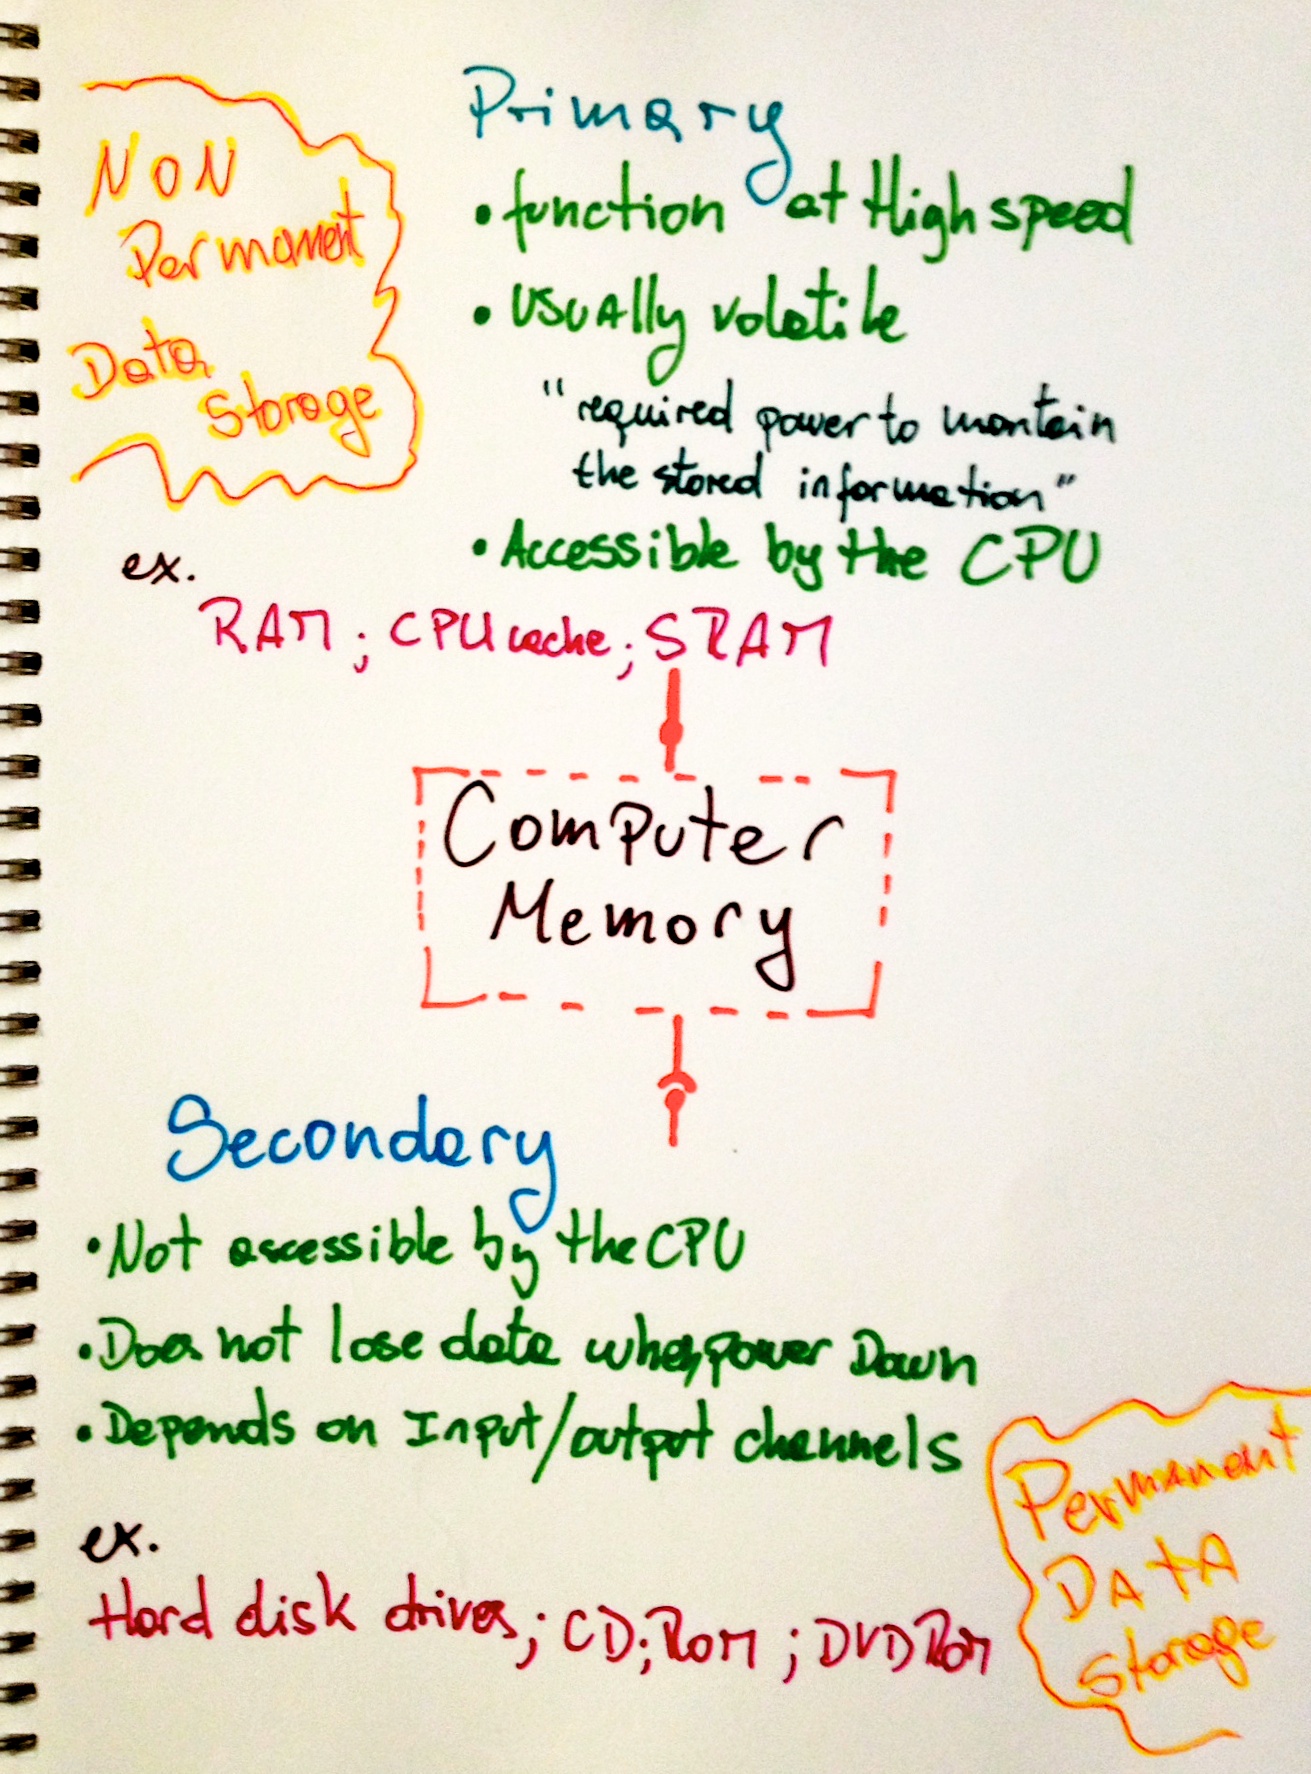 Primary
• function at High speed
• Usually volatile
"required power to maintain
the stored information"
• Accessible by the CPU
NON
Permanent
Data
Storage
ex.
RAM; CPU cache; SRAM
Computer
Memory
Secondary
• Not accessible by the CPU
• Does not lose data when power Down
• Depends on Input/output channels
ex.
Hard disk drives; CD; Rom; DVD Rom
Permanent
DATA
Storage